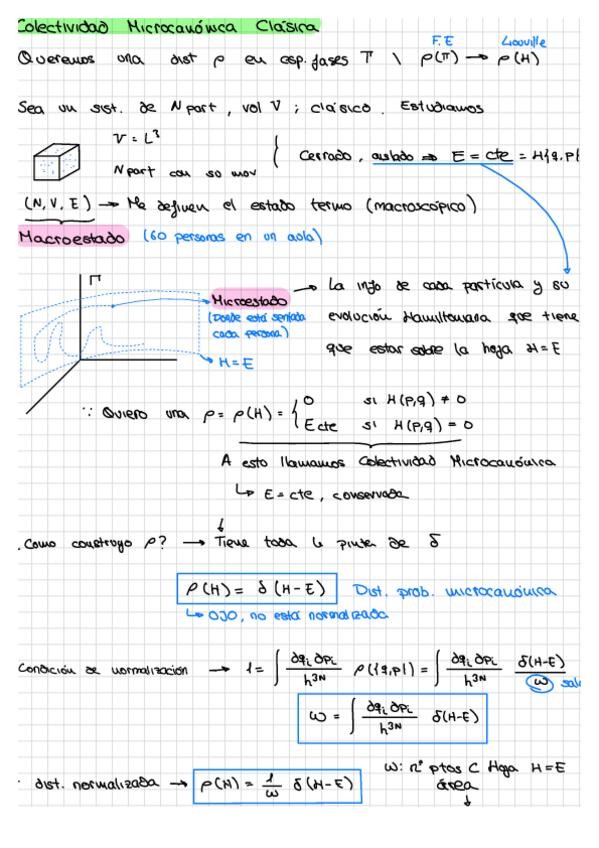 Colectividad Microcanónica Clásica
F.E Liouville
Queremos una dist ρ en esp. fases Γ \ ρ(π) → ρ(H)
Sea un sist. de N part, vol V ; clásico. Estudiamos
V = L³
N part con so mov
{ Cerrado, aislado ⇒ E = cte = H{q,p}
(N, V, E) → Me definen el estado termo (macroscópico)
Macroestado (60 personas en un aula)
Γ
Microestado → La info de cada partícula y su
(Donde está sentada evolución Hamiltoniana que tiene
cada persona)
que estar sobre la hoja H=E
→ H=E
∵ Quiero una ρ = ρ(H) = { 0 si H(p,q) ≠ 0
E cte si H(p,q) = 0
A esto llamamos Colectividad Microcanónica
↳ E = cte, conservada
↓
. Como construyo ρ? → Tiene toda la pinta de δ
ρ(H) = δ(H-E) Dist. prob. microcanónica
↳ OJO, no está normalizada
Condición de normalización → 1 = ∫ ∂qᵢ ∂pᵢ / h³ᴺ ρ({q,p}) = ∫ ∂qᵢ ∂pᵢ / h³ᴺ δ(H-E) / ω
ω = ∫ ∂qᵢ ∂pᵢ / h³ᴺ δ(H-E)
· dist. normalizada → ρ(H) = 1/ω δ(H-E)
ω: nº ptos ⊂ Hoja H=E
área
↓